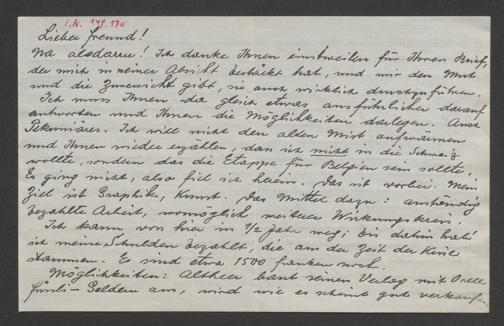 I.N. 149.170
Lieber Freund!
Na alsdann! Ich danke Ihnen einstweilen für Ihren Brief,
der mich in meiner Absicht bestärkt hat, und mir den Mut
und die Zuversicht gibt, sie auch wirklich durchzuführen.
Ich muss Ihnen da gleich etwas ausführlicher darauf
antworten und Ihnen die Möglichkeiten darlegen. Auch
Pekuniäres. Ich will nicht den alten Mist aufwärmen
und Ihnen wieder erzählen, dass ich nicht in die Schweiz
wollte, sondern das die Etappe für Belgien sein sollte.
Es ging nicht, also fiel ich herein. Das ist vorbei. Mein
Ziel ist Graphik, Kunst. Das Mittel dazu: anständig
bezahlte Arbeit, womöglich weiterer Wirkungskreis.
Ich kann von hier in 1/2 Jahr weg; bis dahin hab'
ich meine Schulden bezahlt, die aus der Zeit der Krise
stammen. Es sind etwa 1500 Franken noch.
Möglichkeiten: Altheer baut seinen Verlag mit Orell
Füssli-Geldern aus, wird wie es scheint gut verkauf-